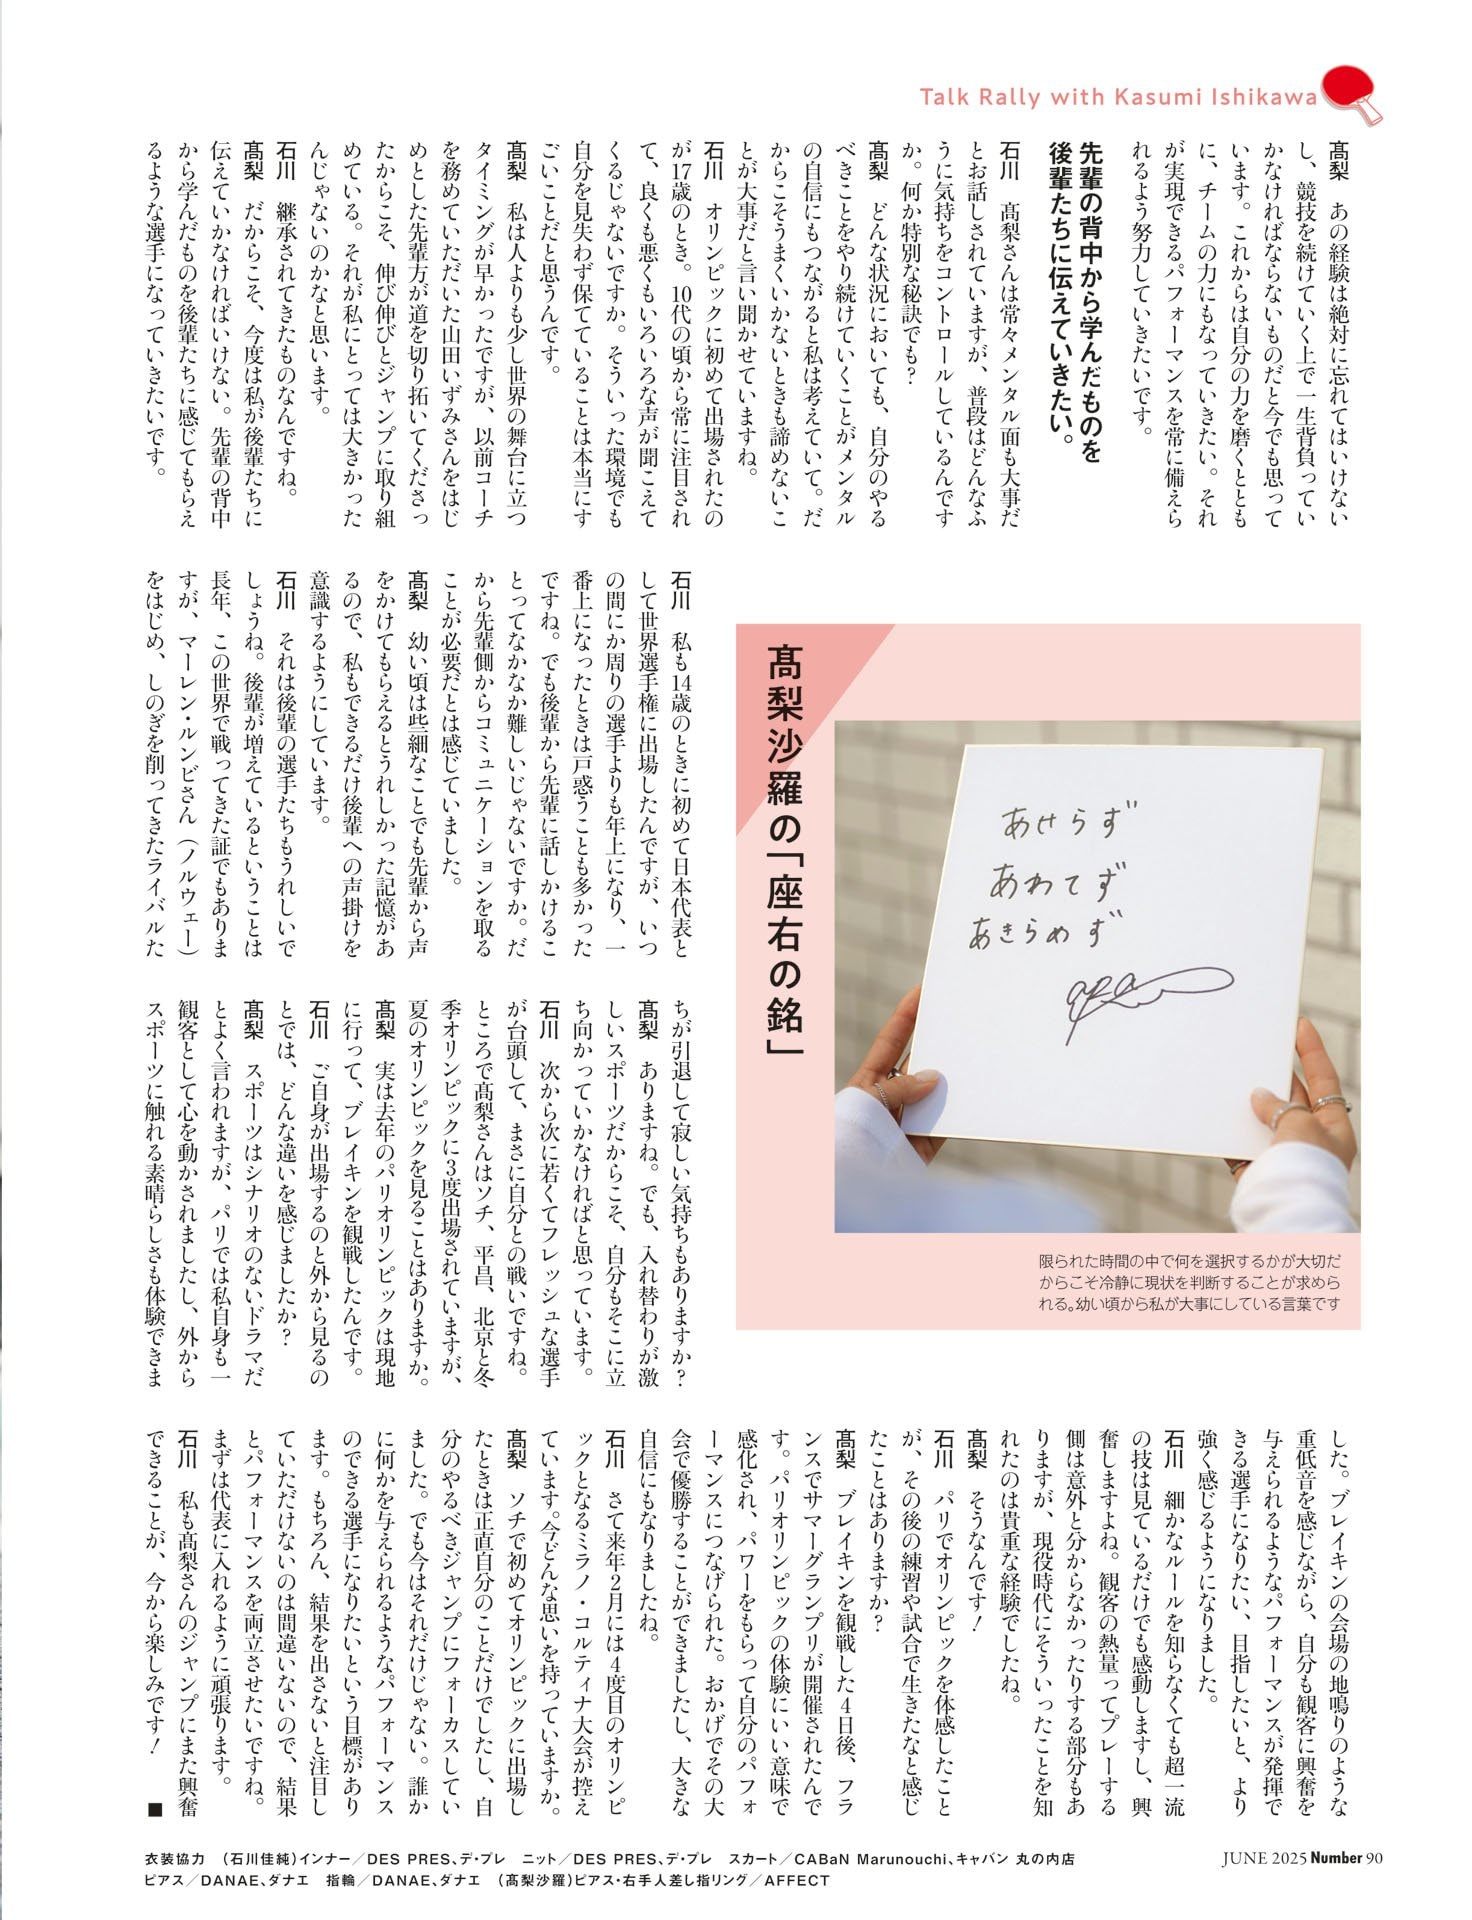 Talk Rally with Kasumi Ishikawa
髙梨　あの経験は絶対に忘れてはいけない
し、競技を続けていく上で一生背負ってい
かなければならないものだと今でも思って
います。これからは自分の力を磨くととも
に、チームの力にもなっていきたい。それ
が実現できるパフォーマンスを常に備えら
れるよう努力していきたいです。
先輩の背中から学んだものを
後輩たちに伝えていきたい。
石川　髙梨さんは常々メンタル面も大事だ
とお話しされていますが、普段はどんなふ
うに気持ちをコントロールしているんです
か。何か特別な秘訣でも？
髙梨　どんな状況においても、自分のやる
べきことをやり続けていくことがメンタル
の自信にもつながると私は考えていて。だ
からこそうまくいかないときも諦めないこ
とが大事だと言い聞かせていますね。
石川　オリンピックに初めて出場されたの
が17歳のとき。10代の頃から常に注目され
て、良くも悪くもいろいろな声が聞こえて
くるじゃないですか。そういった環境でも
自分を見失わず保てていることは本当にす
ごいことだと思うんです。
髙梨　私は人よりも少し世界の舞台に立つ
タイミングが早かったですが、以前コーチ
を務めていただいた山田いずみさんをはじ
めとした先輩方が道を切り拓いてくださっ
たからこそ、伸び伸びとジャンプに取り組
めている。それが私にとっては大きかった
んじゃないのかなと思います。
石川　継承されてきたものなんですね。
髙梨　だからこそ、今度は私が後輩たちに
伝えていかなければいけない。先輩の背中
から学んだものを後輩たちに感じてもらえ
るような選手になっていきたいです。
石川　私も14歳のときに初めて日本代表と
して世界選手権に出場したんですが、いつ
の間にか周りの選手よりも年上になり、一
番上になったときは戸惑うことも多かった
ですね。でも後輩から先輩に話しかけるこ
とってなかなか難しいじゃないですか。だ
から先輩側からコミュニケーションを取る
ことが必要だとは感じていました。
髙梨　幼い頃は些細なことでも先輩から声
をかけてもらえるとうれしかった記憶があ
るので、私もできるだけ後輩への声掛けを
意識するようにしています。
石川　それは後輩の選手たちもうれしいで
しょうね。後輩が増えているということは
長年、この世界で戦ってきた証でもありま
すが、マーレン・ルンビさん（ノルウェー）
をはじめ、しのぎを削ってきたライバルた
ちが引退して寂しい気持ちもありますか？
髙梨　ありますね。でも、入れ替わりが激
しいスポーツだからこそ、自分もそこに立
ち向かっていかなければと思っています。
石川　次から次に若くてフレッシュな選手
が台頭して、まさに自分との戦いですね。
ところで髙梨さんはソチ、平昌、北京と冬
季オリンピックに3度出場されていますが、
夏のオリンピックを見ることはありますか。
髙梨　実は去年のパリオリンピックは現地
に行って、ブレイキンを観戦したんです。
石川　ご自身が出場するのと外から見るの
とでは、どんな違いを感じましたか？
髙梨　スポーツはシナリオのないドラマだ
とよく言われますが、パリでは私自身も一
観客として心を動かされましたし、外から
スポーツに触れる素晴らしさも体験できま
髙梨沙羅の「座右の銘」
あせらず
あわてず
あきらめず
限られた時間の中で何を選択するかが大切だ
からこそ冷静に現状を判断することが求めら
れる。幼い頃から私が大事にしている言葉です
した。ブレイキンの会場の地鳴りのような
重低音を感じながら、自分も観客に興奮を
与えられるようなパフォーマンスが発揮で
きる選手になりたい、目指したいと、より
強く感じるようになりました。
石川　細かなルールを知らなくても超一流
の技は見ているだけでも感動しますし、興
奮しますよね。観客の熱量ってプレーする
側は意外と分からなかったりする部分もあ
りますが、現役時代にそういったことを知
れたのは貴重な経験でしたね。
髙梨　そうなんです！
石川　パリでオリンピックを体感したこと
が、その後の練習や試合で生きたなと感じ
たことはありますか？
髙梨　ブレイキンを観戦した4日後、フラ
ンスでサマーグランプリが開催されたんで
す。パリオリンピックの体験にいい意味で
感化され、パワーをもらって自分のパフォ
ーマンスにつなげられた。おかげでその大
会で優勝することができましたし、大きな
自信にもなりましたね。
石川　さて来年2月には4度目のオリンピ
ックとなるミラノ・コルティナ大会が控え
ています。今どんな思いを持っていますか。
髙梨　ソチで初めてオリンピックに出場し
たときは正直自分のことだけでしたし、自
分のやるべきジャンプにフォーカスしてい
ました。でも今はそれだけじゃない。誰か
に何かを与えられるようなパフォーマンス
のできる選手になりたいという目標があり
ます。もちろん、結果を出さないと注目し
ていただけないのは間違いないので、結果
とパフォーマンスを両立させたいですね。
まずは代表に入れるように頑張ります。
石川　私も髙梨さんのジャンプにまた興奮
できることが、今から楽しみです！　■
衣装協力　（石川佳純）インナー／DES PRES、デ・プレ　ニット／DES PRES、デ・プレ　スカート／CABaN Marunouchi、キャバン 丸の内店
ピアス／DANAE、ダナエ　指輪／DANAE、ダナエ　（髙梨沙羅）ピアス・右手人差し指リング／AFFECT
JUNE 2025 Number 90